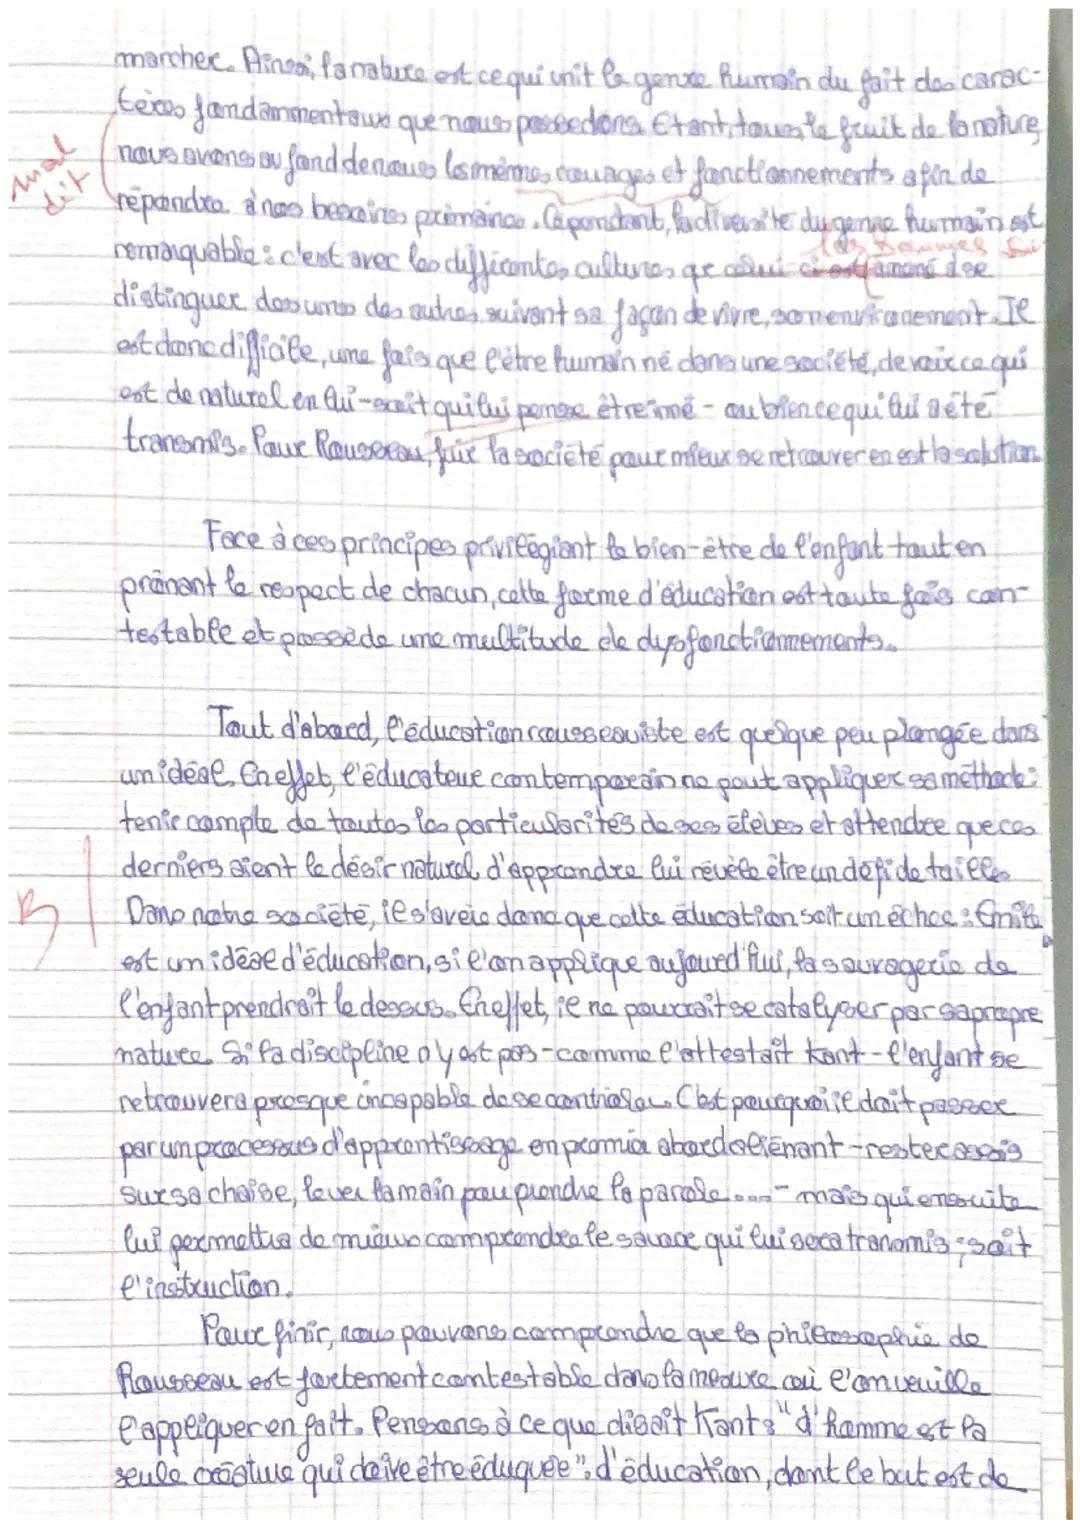 marcher. Ainsi, la nature est ce qui unit le genre humain du fait des carac-
tères fondammentaux que nous possédons. Etant, tous, le fruit de la nature,
mal dit
nous avons au fond de nous les mêmes rouages et fonctionnements afin de
répondre à nos besoins primaires. Cependant, la diversité du genre humain est
les hommes
remarquable : c'est avec les différentes cultures que celui-ci est amené à se
distinguer des uns des autres suivant sa façon de vivre, son environement. Il
est donc difficile, une fois que l'être humain né dans une société, de voir ce qui
est de naturel en lui - soit qui lui pense être inné - ou bien ce qui lui a été
transmis. Pour Rousseau, fuir la société pour mieux se retrouver en est la solution.
Face à ces principes privilégiant le bien-être de l'enfant tout en
prônant le respect de chacun, cette forme d'éducation est toute fois con-
testable et possède une multitude de dysfonctionnements.
Tout d'abord, l'éducation rousseauiste est quelque peu plongée dans
un idéal. En effet, l'éducateur contemporain ne peut appliquer sa méthode :
tenir compte de toutes les particularités de ses élèves et attendre que ces
derniers aient le désir naturel d'apprendre lui révèle être un défi de taille.
B
Dans notre société, il s'avère donc que cette éducation soit un échec : Emile
est un idéal d'éducation, si l'on applique aujourd'hui, la sauvagerie de
l'enfant prendrait le dessus. En effet, il ne pourrait se catalyser par sa propre
nature. Si la discipline n'y est pas - comme l'attestait Kant - l'enfant se
retrouvera presque incapable de se contrôler. C'est pourquoi il doit passer
par un processus d'apprentissage en premier abord aliénant - rester assis
sur sa chaise, lever la main pour prendre la parole ... - mais qui ensuite
lui permettra de mieux comprendre le savoir qui lui sera transmis : soit
l'instruction.
Pour finir, nous pouvons comprendre que la philosophie de
Rousseau est fortement contestable dans la mesure où l'on veuille
l'appliquer en fait. Pensons à ce que disait Kant : "L'homme est la
seule créature qui doive être éduquée". L'éducation, dont le but est de